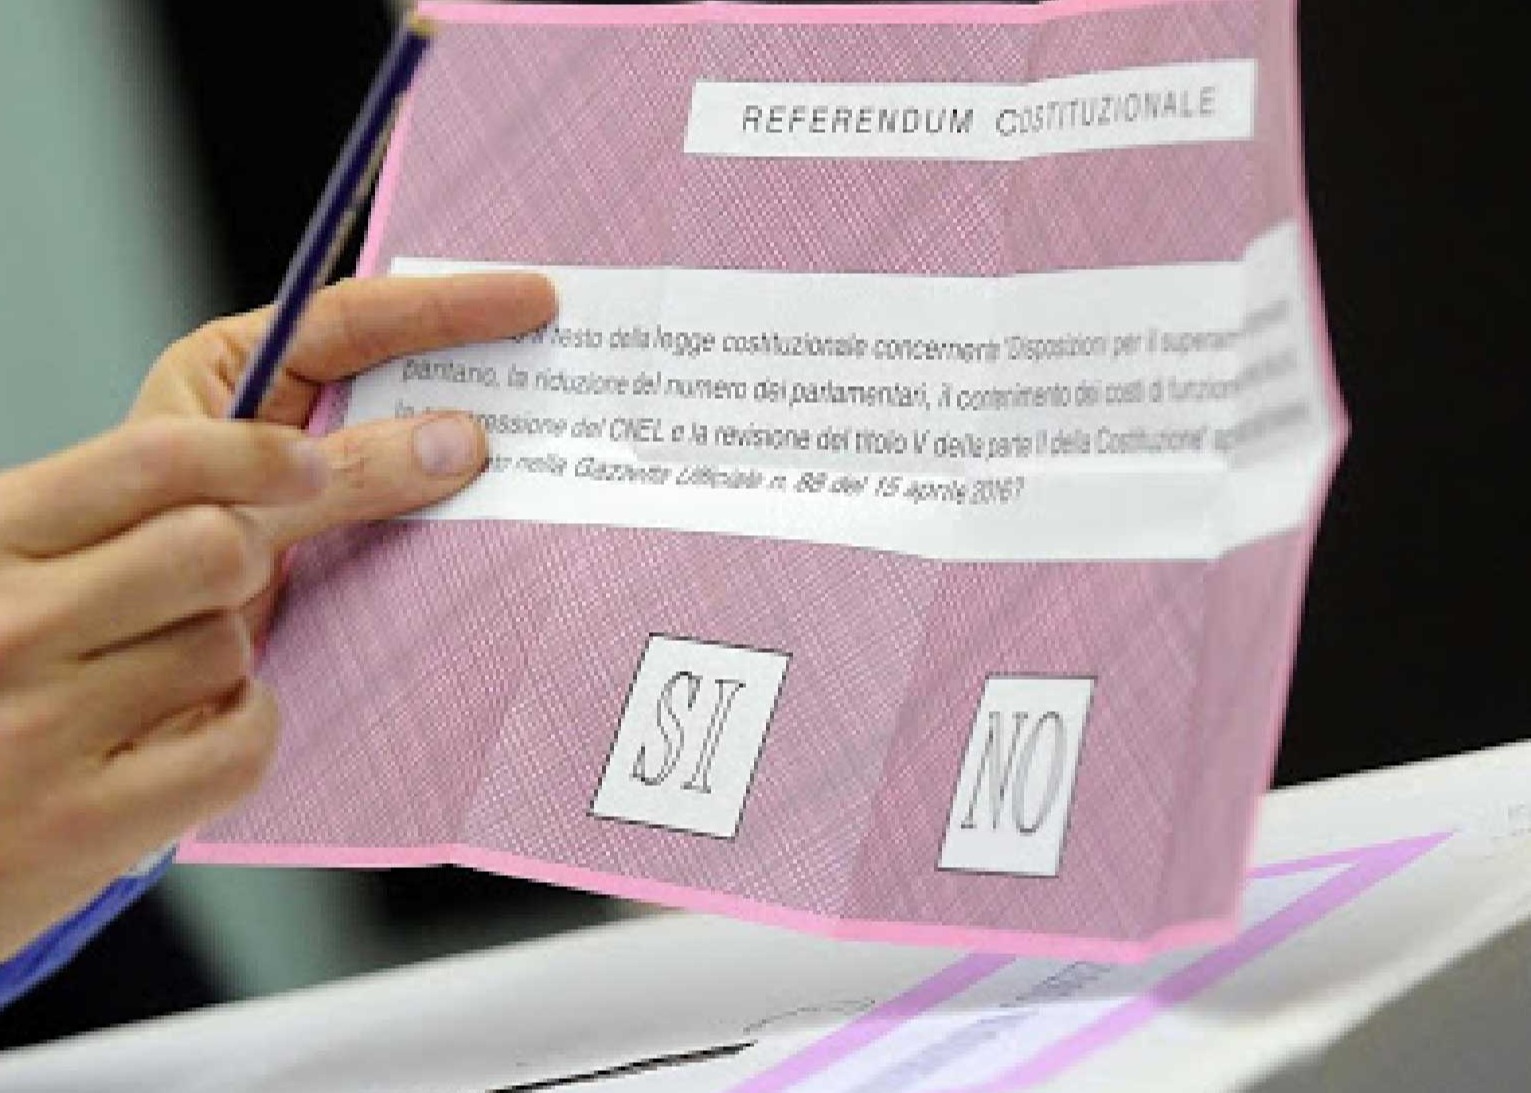 REFERENDUM COSTITUZIONALE
il testo della legge costituzionale concernente "Disposizioni per il
paritario, la riduzione del numero dei parlamentari, il contenimento dei costi di
del CNEL e la revisione del titolo V della parte II della Costituzione"
nella Gazzetta Ufficiale n. 88 del 15 aprile 2016?
SI
NO